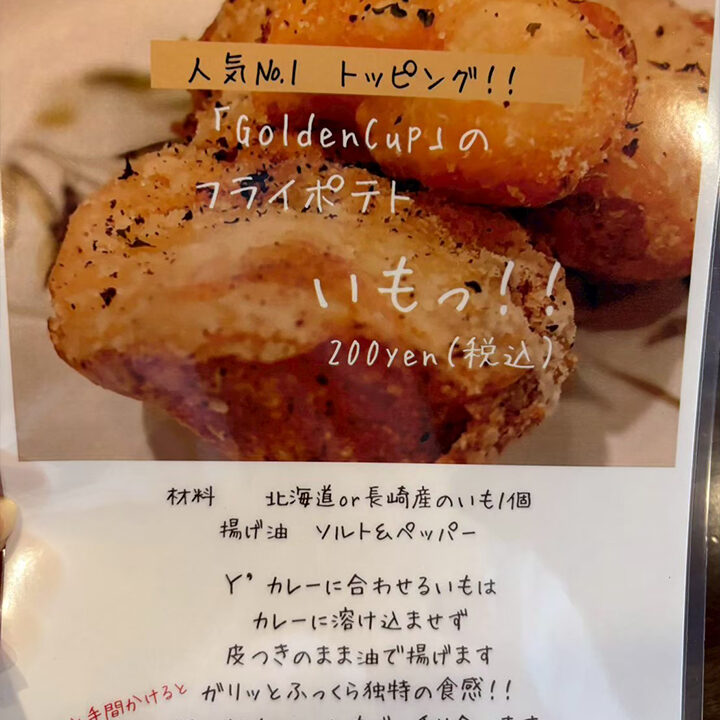 人気No.1 トッピング!!
「GoldenCup」の
フライポテト
いもっ!!
200yen(税込)
材料 北海道or長崎産のいも1個
揚げ油 ソルト&ペッパー
Y'カレーに合わせるいもは
カレーに溶け込ませず
皮つきのまま油で揚げます
手間かけると
ガリッとふっくら独特の食感!!